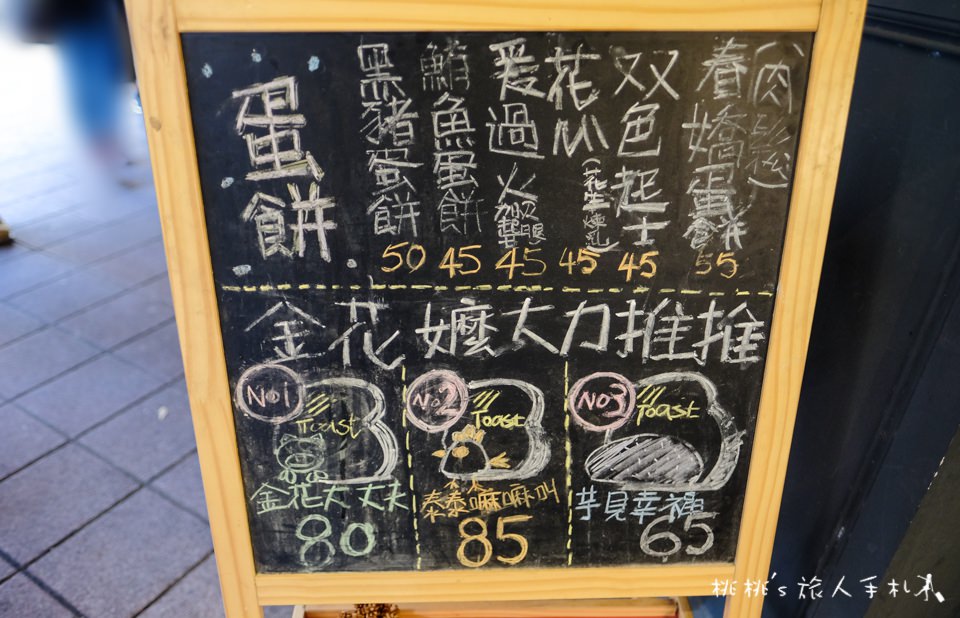 蛋餅
黑豬蛋餅 50
鮪魚蛋餅 45
爱過火 45
花心(花生煉乳) 45
双色起士 45
春嬌蛋餅(肉鬆) 55
金花嬤大力推推
No1 Toast
金花大丈夫
80
No2 Toast
泰泰嘛嘛叫
85
No3 Toast
芋見幸福
65
桃桃's旅人手札